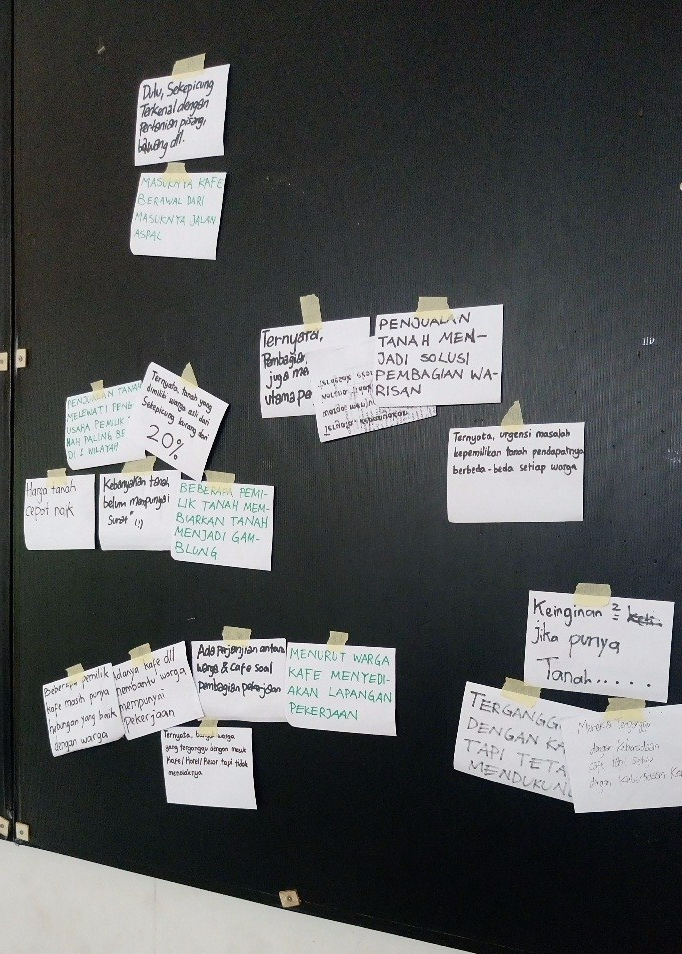 Dulu, Sekepicung
Terkenal dengan
Pertanian pisang,
bawang dll.
MASUKNYA KAFE
BERAWAL DARI
MASUKNYA JALAN
ASPAL
Ternyata,
Pembagia
juga me
utama pe
PENJUALAN
TANAH MEN-
JADI SOLUSI
PEMBAGIAN WA-
RISAN
PENJUALAN TANAH
MELEWATI PENG
USAHA PEMILIK
NAH PALING BE
DI WILAYAH
Ternyata, tanah yang
dimilik warga asli dari
Sekepicung kurang dari
20%
Ternyata, urgensi masalah
kepemilikan tanah pendapatnya
berbeda-beda setiap warga
Harga tanah
cepat naik
Kebanyakan tanah
belum mempunyai
Surat" (!)
BEBERAPA PEMI-
LIK TANAH MEM-
BIARKAN TANAH
MENJADI GAM-
BLUNG
Keinginan
jika punya
Tanah.....
Beberapa pemilik
Kafe masih punya
hubungan yang baik
dengan warga
Adanya kafe dll
membantu warga
mempunyai
pekerjaan
Ada perjanjian antara
warga & cafe soal
pembagian pekerjaan
MENURUT WARGA
KAFE MENYEDI-
AKAN LAPANGAN
PEKERJAAN
Ternyata, warga
yang terganggu dengan masuk
Kafe/Hotel/Resor tapi tidak
menolaknya
TERGANGG
DENGAN KA
TAPI TETA
MENDUKUN
Mereka terganggu
dengan keberadaan